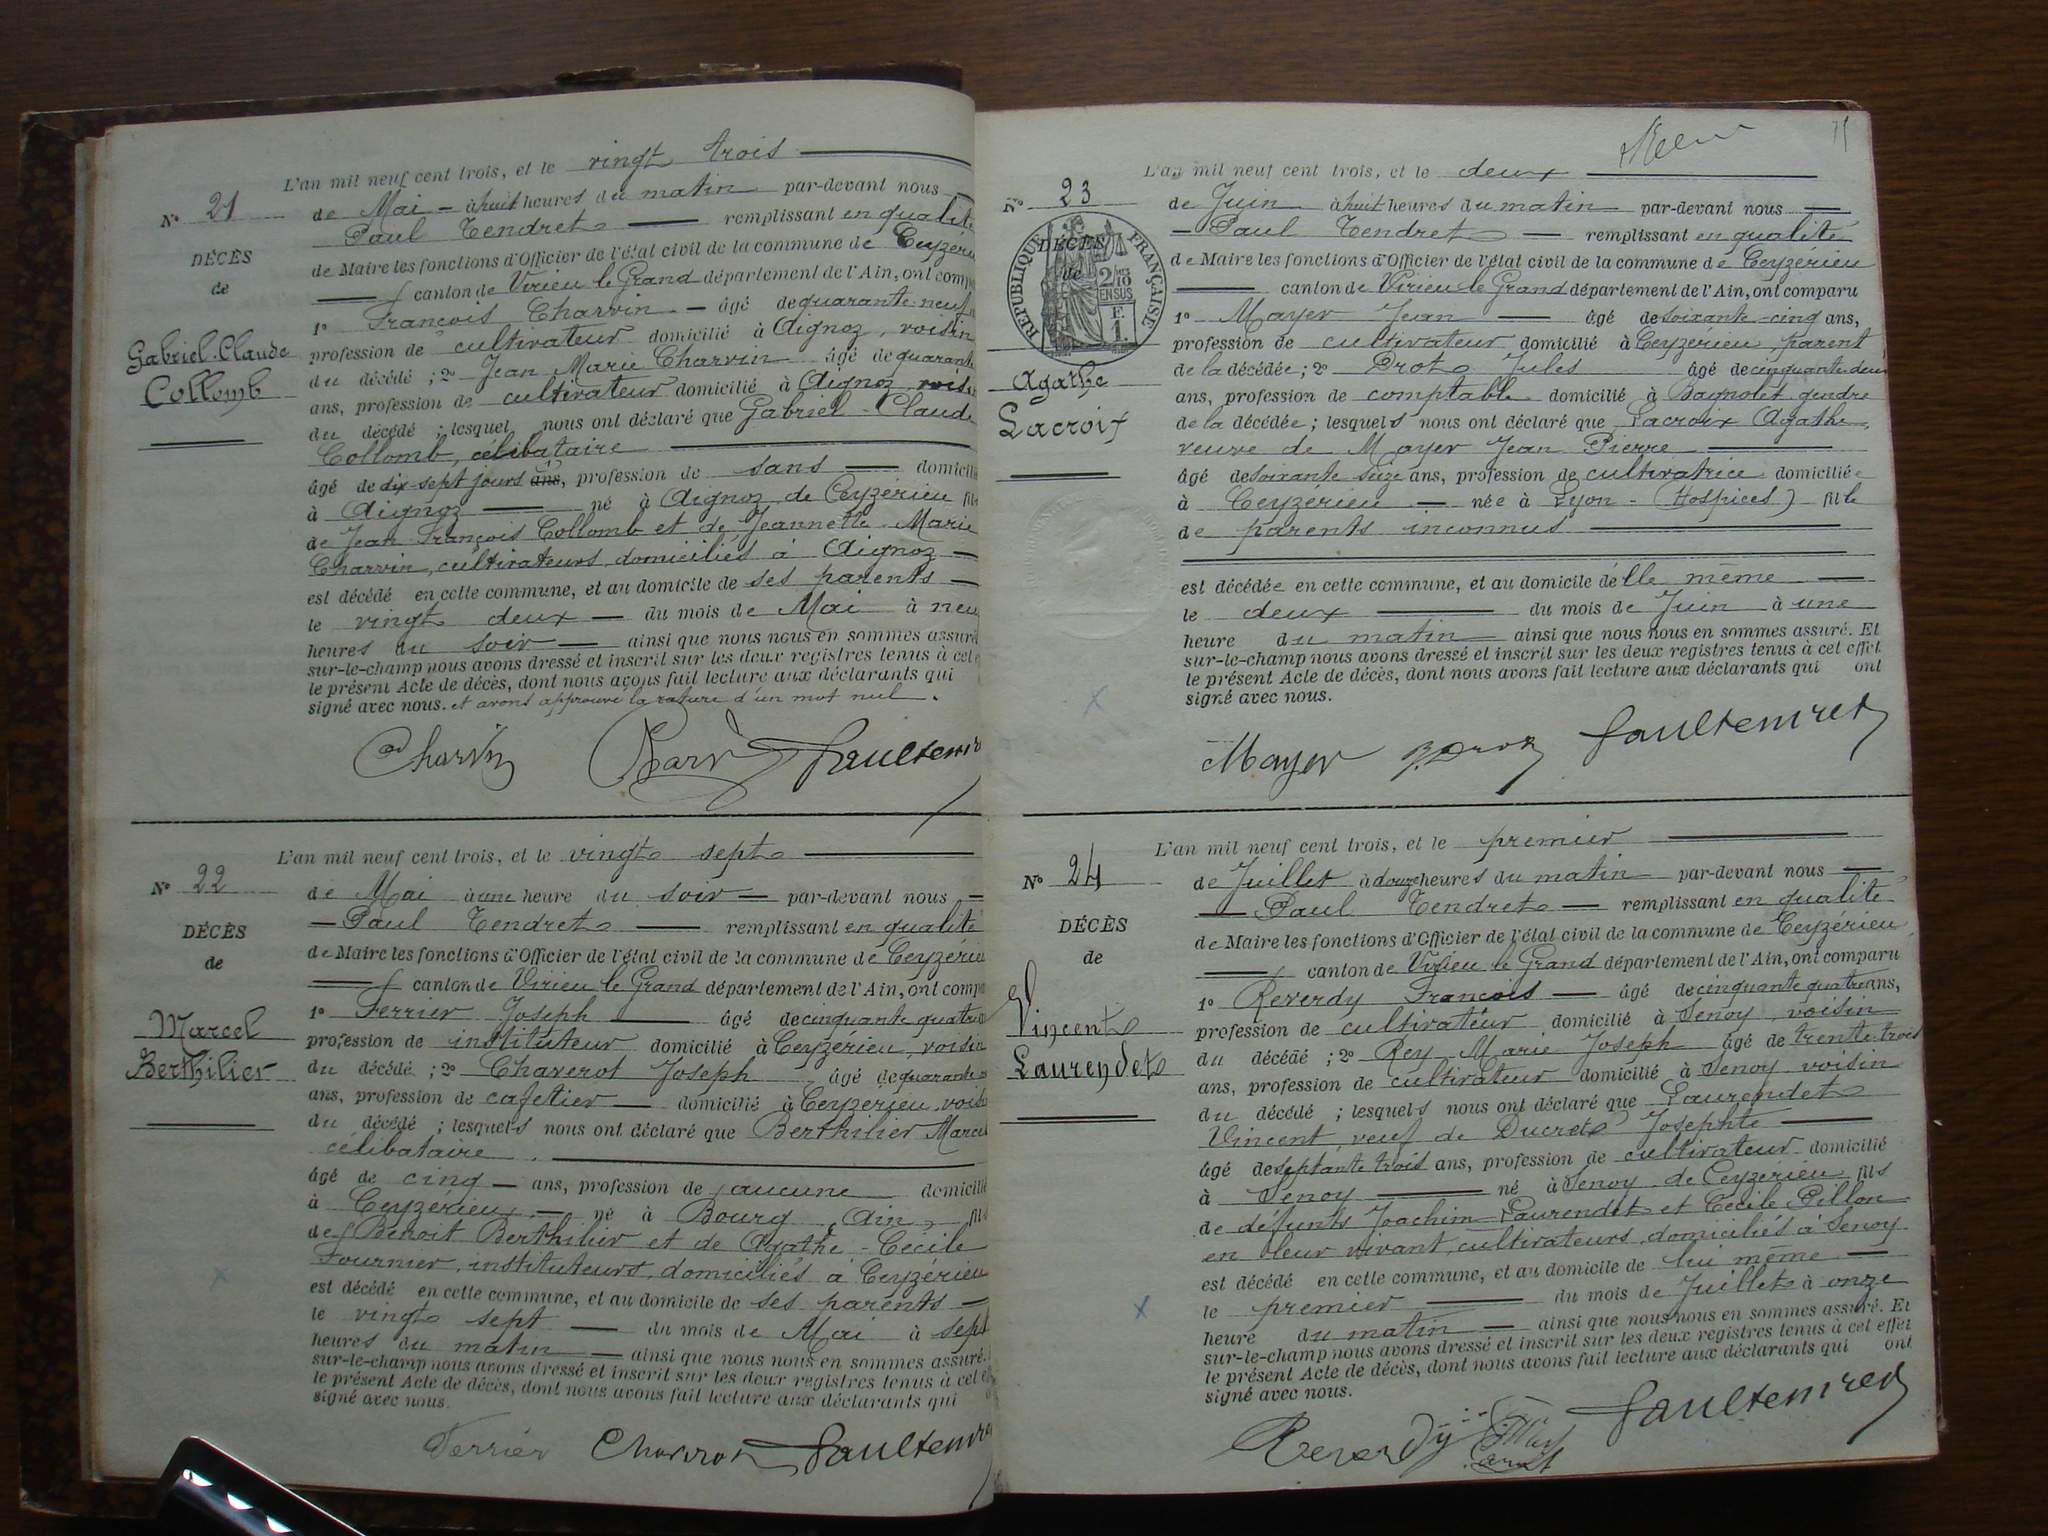 L'an mil neuf cent trois, et le vingt trois
N° 21
de Mai à huit heures du matin par-devant nous
Paul Tendret remplissant en qualité
DÉCÈS
de Maire les fonctions d'Officier de l'état civil de la commune de Ceyzérieu
de
canton de Virieu le Grand département de l'Ain, ont comp
1° François Charvin âgé de quarante neuf
Gabriel-Claude
profession de cultivateur domicilié à Aignoz, voisin
Collomb
du décédé ; 2° Jean Marie Charvin âgé de quarante
ans, profession de cultivateur domicilié à Aignoz voisin
du décédé ; lesquel nous ont déclaré que Gabriel-Claude
Collomb, célibataire
âgé de dix-sept jours ans, profession de sans domicilié
à Aignoz né à Aignoz de Ceyzérieu fils
de Jean François Collomb et de Jeannette Marie
Charvin, cultivateurs, domiciliés à Aignoz
est décédé en cette commune, et au domicile de ses parents
le vingt deux du mois de Mai à neu
heures du soir ainsi que nous nous en sommes assuré
sur-le-champ nous avons dressé et inscrit sur les deux registres tenus à cet e
le présent Acte de décès, dont nous avons fait lecture aux déclarants qui
signé avec nous. et avons approuvé la rature d'un mot nul.
Charvin Charvin Paul Tendret
L'an mil neuf cent trois, et le vingt sept
N° 22
de Mai à une heure du soir par-devant nous
Paul Tendret remplissant en qualité
DÉCÈS
de Maire les fonctions d'Officier de l'état civil de la commune de Ceyzérieu
de
canton de Virieu le Grand département de l'Ain, ont comp
1° Ferrier Joseph âgé de cinquante quatre
Marcel
profession de instituteur domicilié à Ceyzérieu, voisin
Berthilier
du décédé ; 2° Chaverot Joseph âgé de quarante
ans, profession de cafetier domicilié à Ceyzérieu, voisin
du décédé ; lesquels nous ont déclaré que Berthilier Marcel
célibataire.
âgé de cinq ans, profession de aucune domicilié
à Ceyzérieu né à Bourg (Ain) fils
de Benoit Berthilier et de Agathe-Cécile
Fournier, instituteurs, domiciliés à Ceyzérieu
est décédé en cette commune, et au domicile de ses parents
le vingt sept du mois de Mai à sept
heures du matin ainsi que nous nous en sommes assuré.
sur-le-champ nous avons dressé et inscrit sur les deux registres tenus à cet e
le présent Acte de décès, dont nous avons fait lecture aux déclarants qui
signé avec nous.
Ferrier Chaverot Paul Tendret
75
L'an mil neuf cent trois, et le deux
N° 23
de Juin à huit heures du matin par-devant nous
Paul Tendret remplissant en qualité
DÉCÈS
de
RÉPUBLIQUE FRANÇAISE
2/10 EN SUS
F. 1.
de Maire les fonctions d'Officier de l'état civil de la commune de Ceyzérieu
canton de Virieu le Grand département de l'Ain, ont comparu
1° Mayer Jean âgé de soixante-cinq ans,
profession de cultivateur domicilié à Ceyzérieu, parent
de la décédée ; 2° Drot Jules âgé de cinquante deux
Agathe
ans, profession de comptable domicilié à Bagnolet gendre
Lacroix
de la décédée ; lesquels nous ont déclaré que Lacroix Agathe,
veuve de Mayer Jean Pierre
âgé de soixante seize ans, profession de cultivatrice domiciliée
à Ceyzérieu née à Lyon (Hospices) fille
de parents inconnus
est décédée en cette commune, et au domicile d'elle même
le deux du mois de Juin à une
heure du matin ainsi que nous nous en sommes assuré. Et
sur-le-champ nous avons dressé et inscrit sur les deux registres tenus à cet effet
le présent Acte de décès, dont nous avons fait lecture aux déclarants qui ont
signé avec nous.
Mayer J. Drot Paul Tendret
L'an mil neuf cent trois, et le premier
N° 24
de Juillet à douze heures du matin par-devant nous
Paul Tendret remplissant en qualité
DÉCÈS
de Maire les fonctions d'Officier de l'état civil de la commune de Ceyzérieu
de
canton de Virieu le Grand département de l'Ain, ont comparu
1° Reverdy François âgé de cinquante quatre ans,
Vincent
profession de cultivateur domicilié à Senoy, voisin
Laurendet
du décédé ; 2° Rey Marie Joseph âgé de trente-trois
ans, profession de cultivateur domicilié à Senoy voisin
du décédé ; lesquels nous ont déclaré que Laurendet
Vincent, veuf de Ducret Josephte
âgé de septante trois ans, profession de cultivateur domicilié
à Senoy né à Senoy de Ceyzérieu fils
de défunts Joachim Laurendet et Cécile Pillon
en leur vivant, cultivateurs, domiciliés à Senoy
est décédé en cette commune, et au domicile de lui même
le premier du mois de Juillet à onze
heure du matin ainsi que nous nous en sommes assuré. Et
sur-le-champ nous avons dressé et inscrit sur les deux registres tenus à cet effet
le présent Acte de décès, dont nous avons fait lecture aux déclarants qui ont
signé avec nous.
Reverdy Paul Tendret